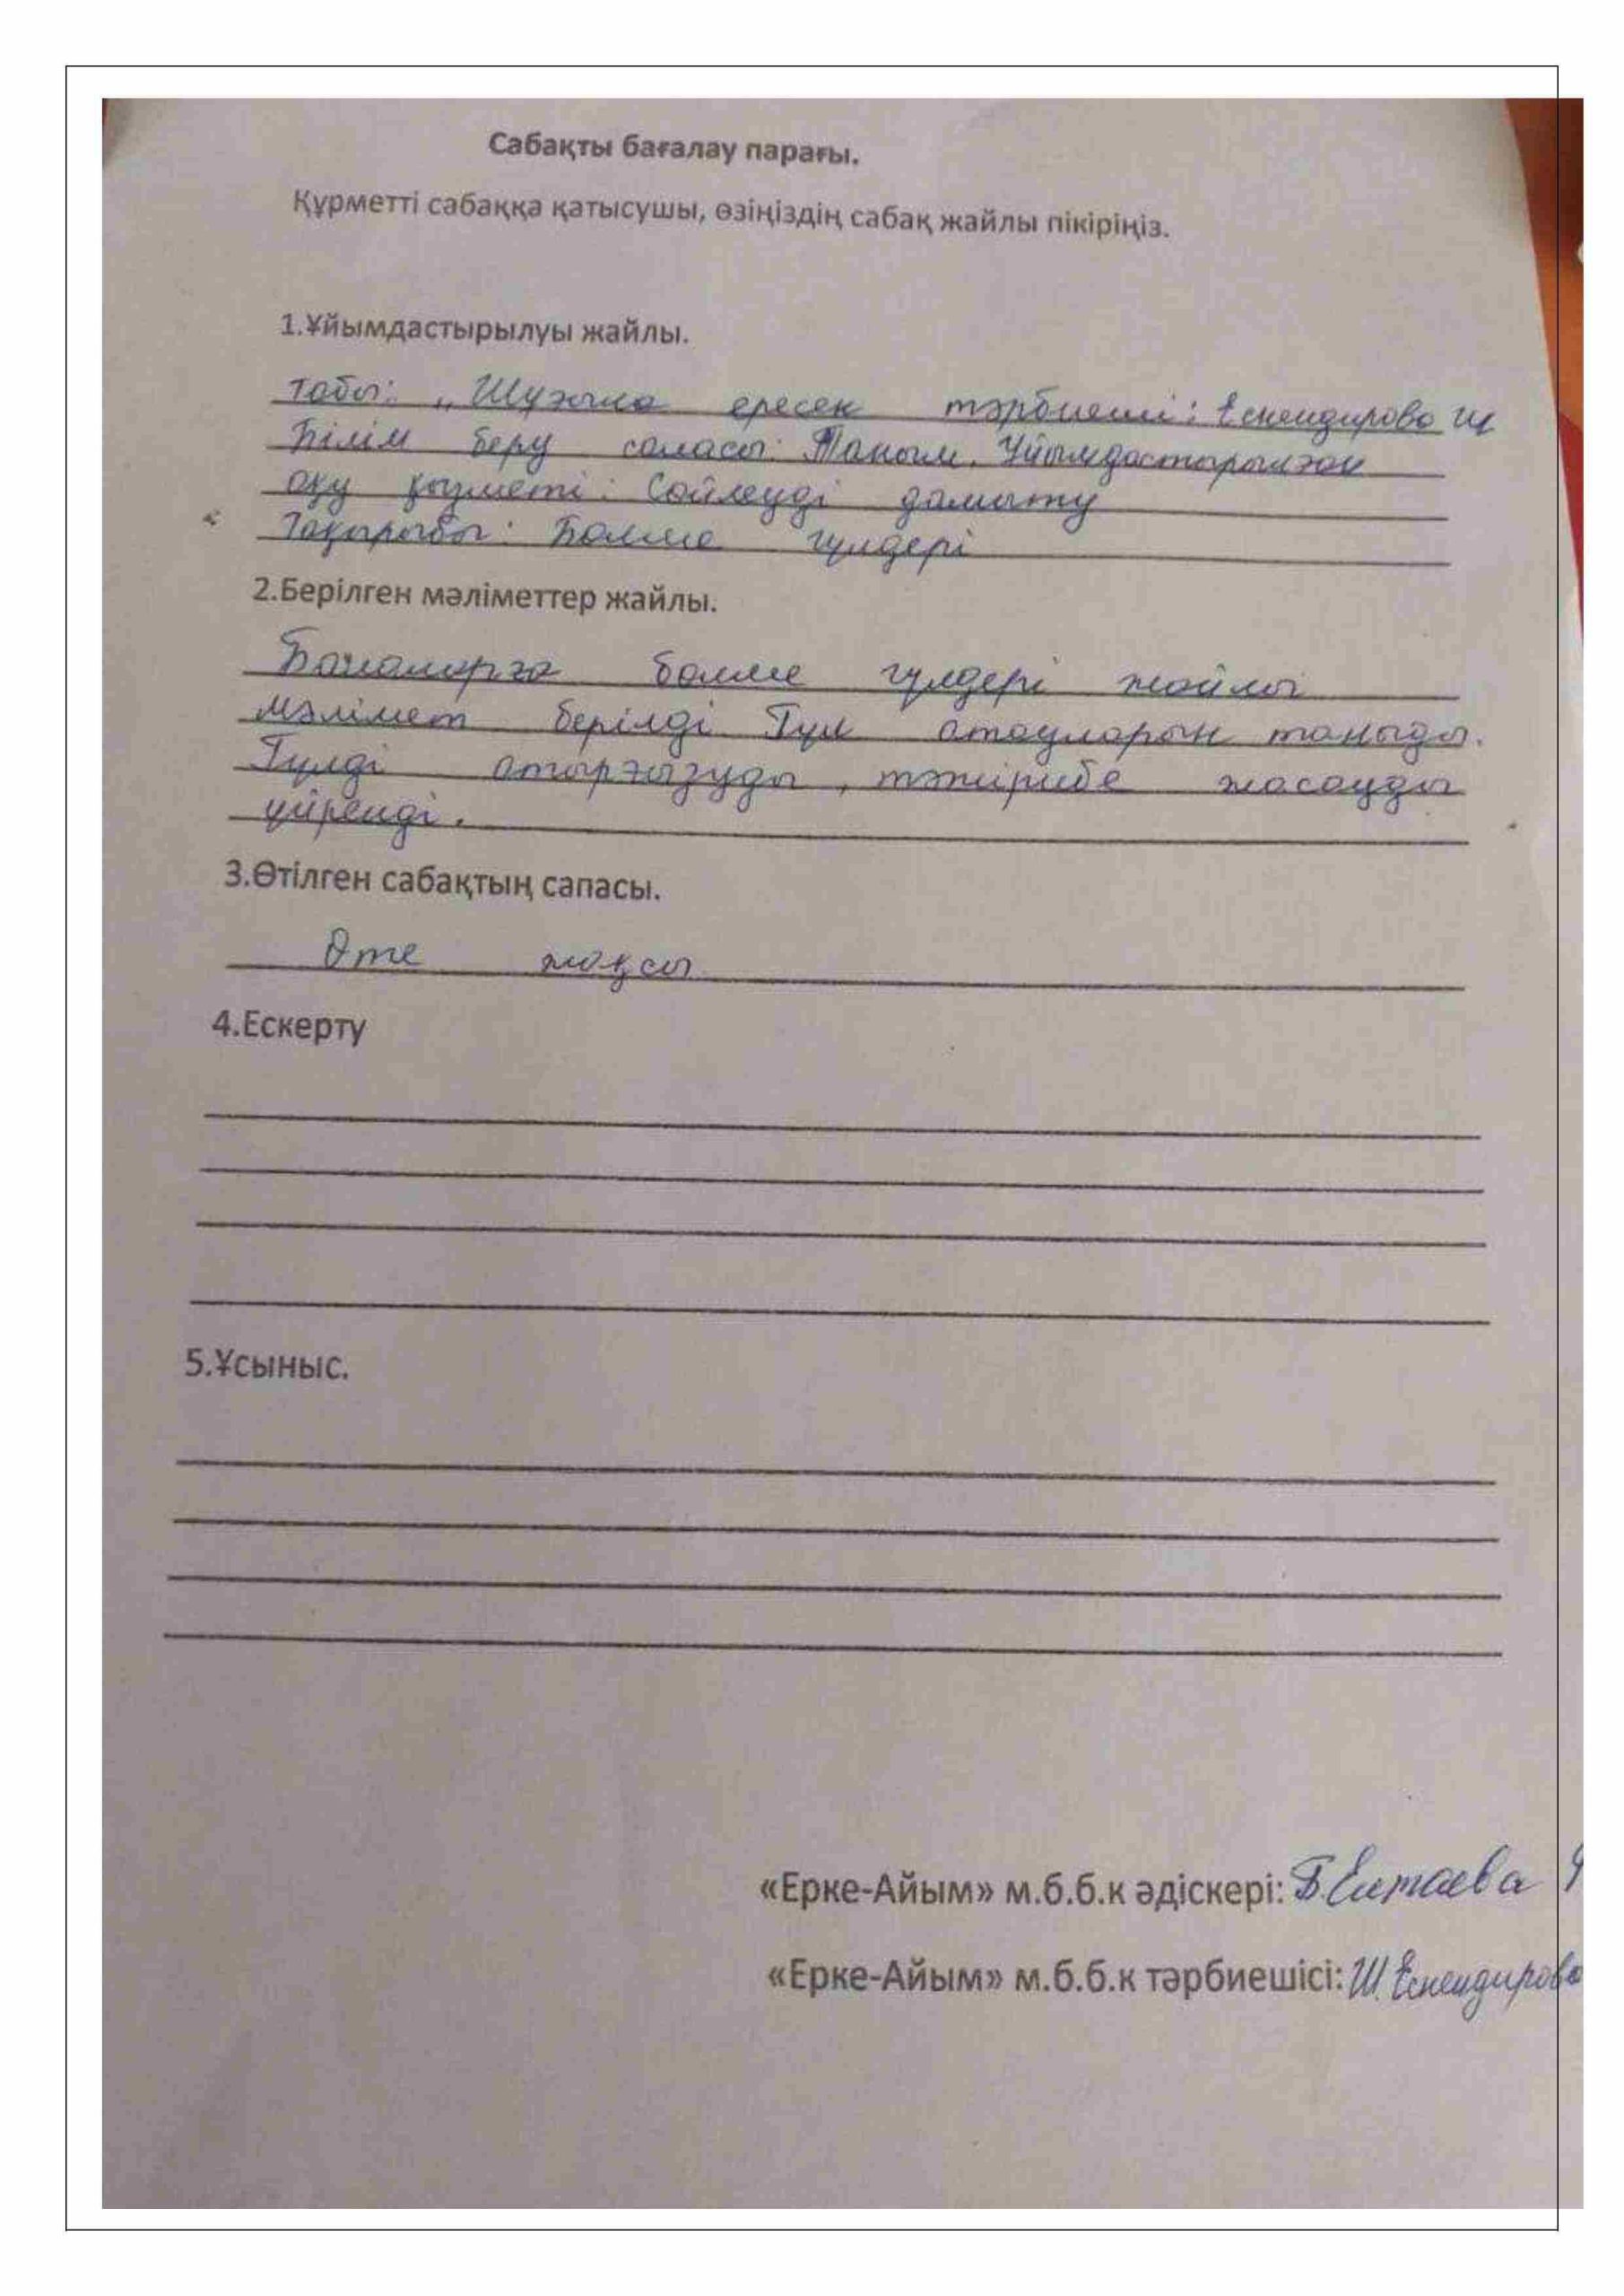 Сабақты бағалау парағы.
Құрметті сабаққа қатысушы, өзіңіздің сабақ жайлы пікіріңіз.
1.Ұйымдастырылуы жайлы.
Тобы: „Шұғыла ересек тәрбиеші: Ескендирова Ш
Білім беру саласы: Таным. Ұйымдастырылған
оқу қызметі: Сөйлеуді дамыту
Тақырыбы: Бөлме гүлдері
2.Берілген мәліметтер жайлы.
Балаларға бөлме гүлдері жайлы
мәлімет берілді Гүл атауларын таныды.
Гүлді отырғызуды, тәжірибе жасауды
үйренді.
3.Өтілген сабақтың сапасы.
Өте жақсы
4.Ескерту
5.Ұсыныс.
«Ерке-Айым» м.б.б.к әдіскері: Б.Елтаева
«Ерке-Айым» м.б.б.к тәрбиешісі: Ш.Ескендирова